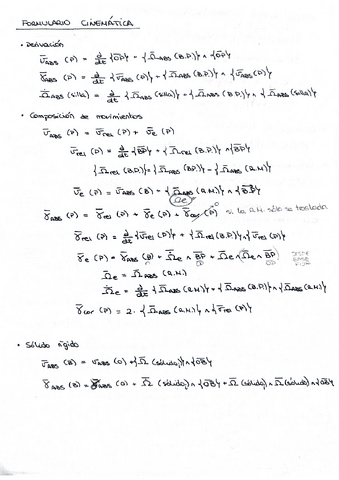 FORMULARIO CINEMÁTICA
• Derivación
v̄ABS (P) = d/dt {OP} + {Ω̄ABS (B.P.)} ∧ {OP}
γ̄ABS (P) = d/dt {v̄ABS (P)} + {Ω̄ABS (B.P.)} ∧ {v̄ABS (P)}
Ω̄̇ABS (silla) = d/dt {Ω̄ABS (silla)} + {Ω̄ABS (B.P.)} ∧ {Ω̄ABS (silla)}
• Composición de movimientos
v̄ABS (P) = v̄rel (P) + v̄e (P)
v̄rel (P) = d/dt {BP} + {Ω̄rel (B.P.)} ∧ {BP}
{Ω̄rel (B.P.)} = {Ω̄ABS (B.P.)} - {Ω̄ABS (R.M.)}
v̄e (P) = v̄ABS (B) + {Ω̄ABS (R.M.)} ∧ {BP}
Ω̄e
γ̄ABS (P) = γ̄rel (P) + γ̄e (P) + γ̄cor (P) 0 si la R.M. sólo se traslada
γ̄rel (P) = d/dt {v̄rel (P)} + {Ω̄rel (B.P.)} ∧ {v̄rel (P)}
γ̄e (P) = γ̄ABS (B) + Ω̄̇e ∧ BP + Ω̄e ∧ (Ω̄e ∧ BP)
Ω̄e = Ω̄ABS (R.M.)
Ω̄̇e = d/dt {Ω̄ABS (R.M.)} + {Ω̄ABS (B.P.)} ∧ {Ω̄ABS (R.M.)}
γ̄cor (P) = 2 · {Ω̄ABS (R.M.)} ∧ {v̄rel (P)}
• Sólido rígido
v̄ABS (B) = v̄ABS (O) + {Ω̄ (sólido)} ∧ {OB}
γ̄ABS (B) = γ̄ABS (O) + Ω̄̇ (sólido) ∧ {OB} + Ω̄ (sólido) ∧ Ω̄ (sólido) ∧ {OB}